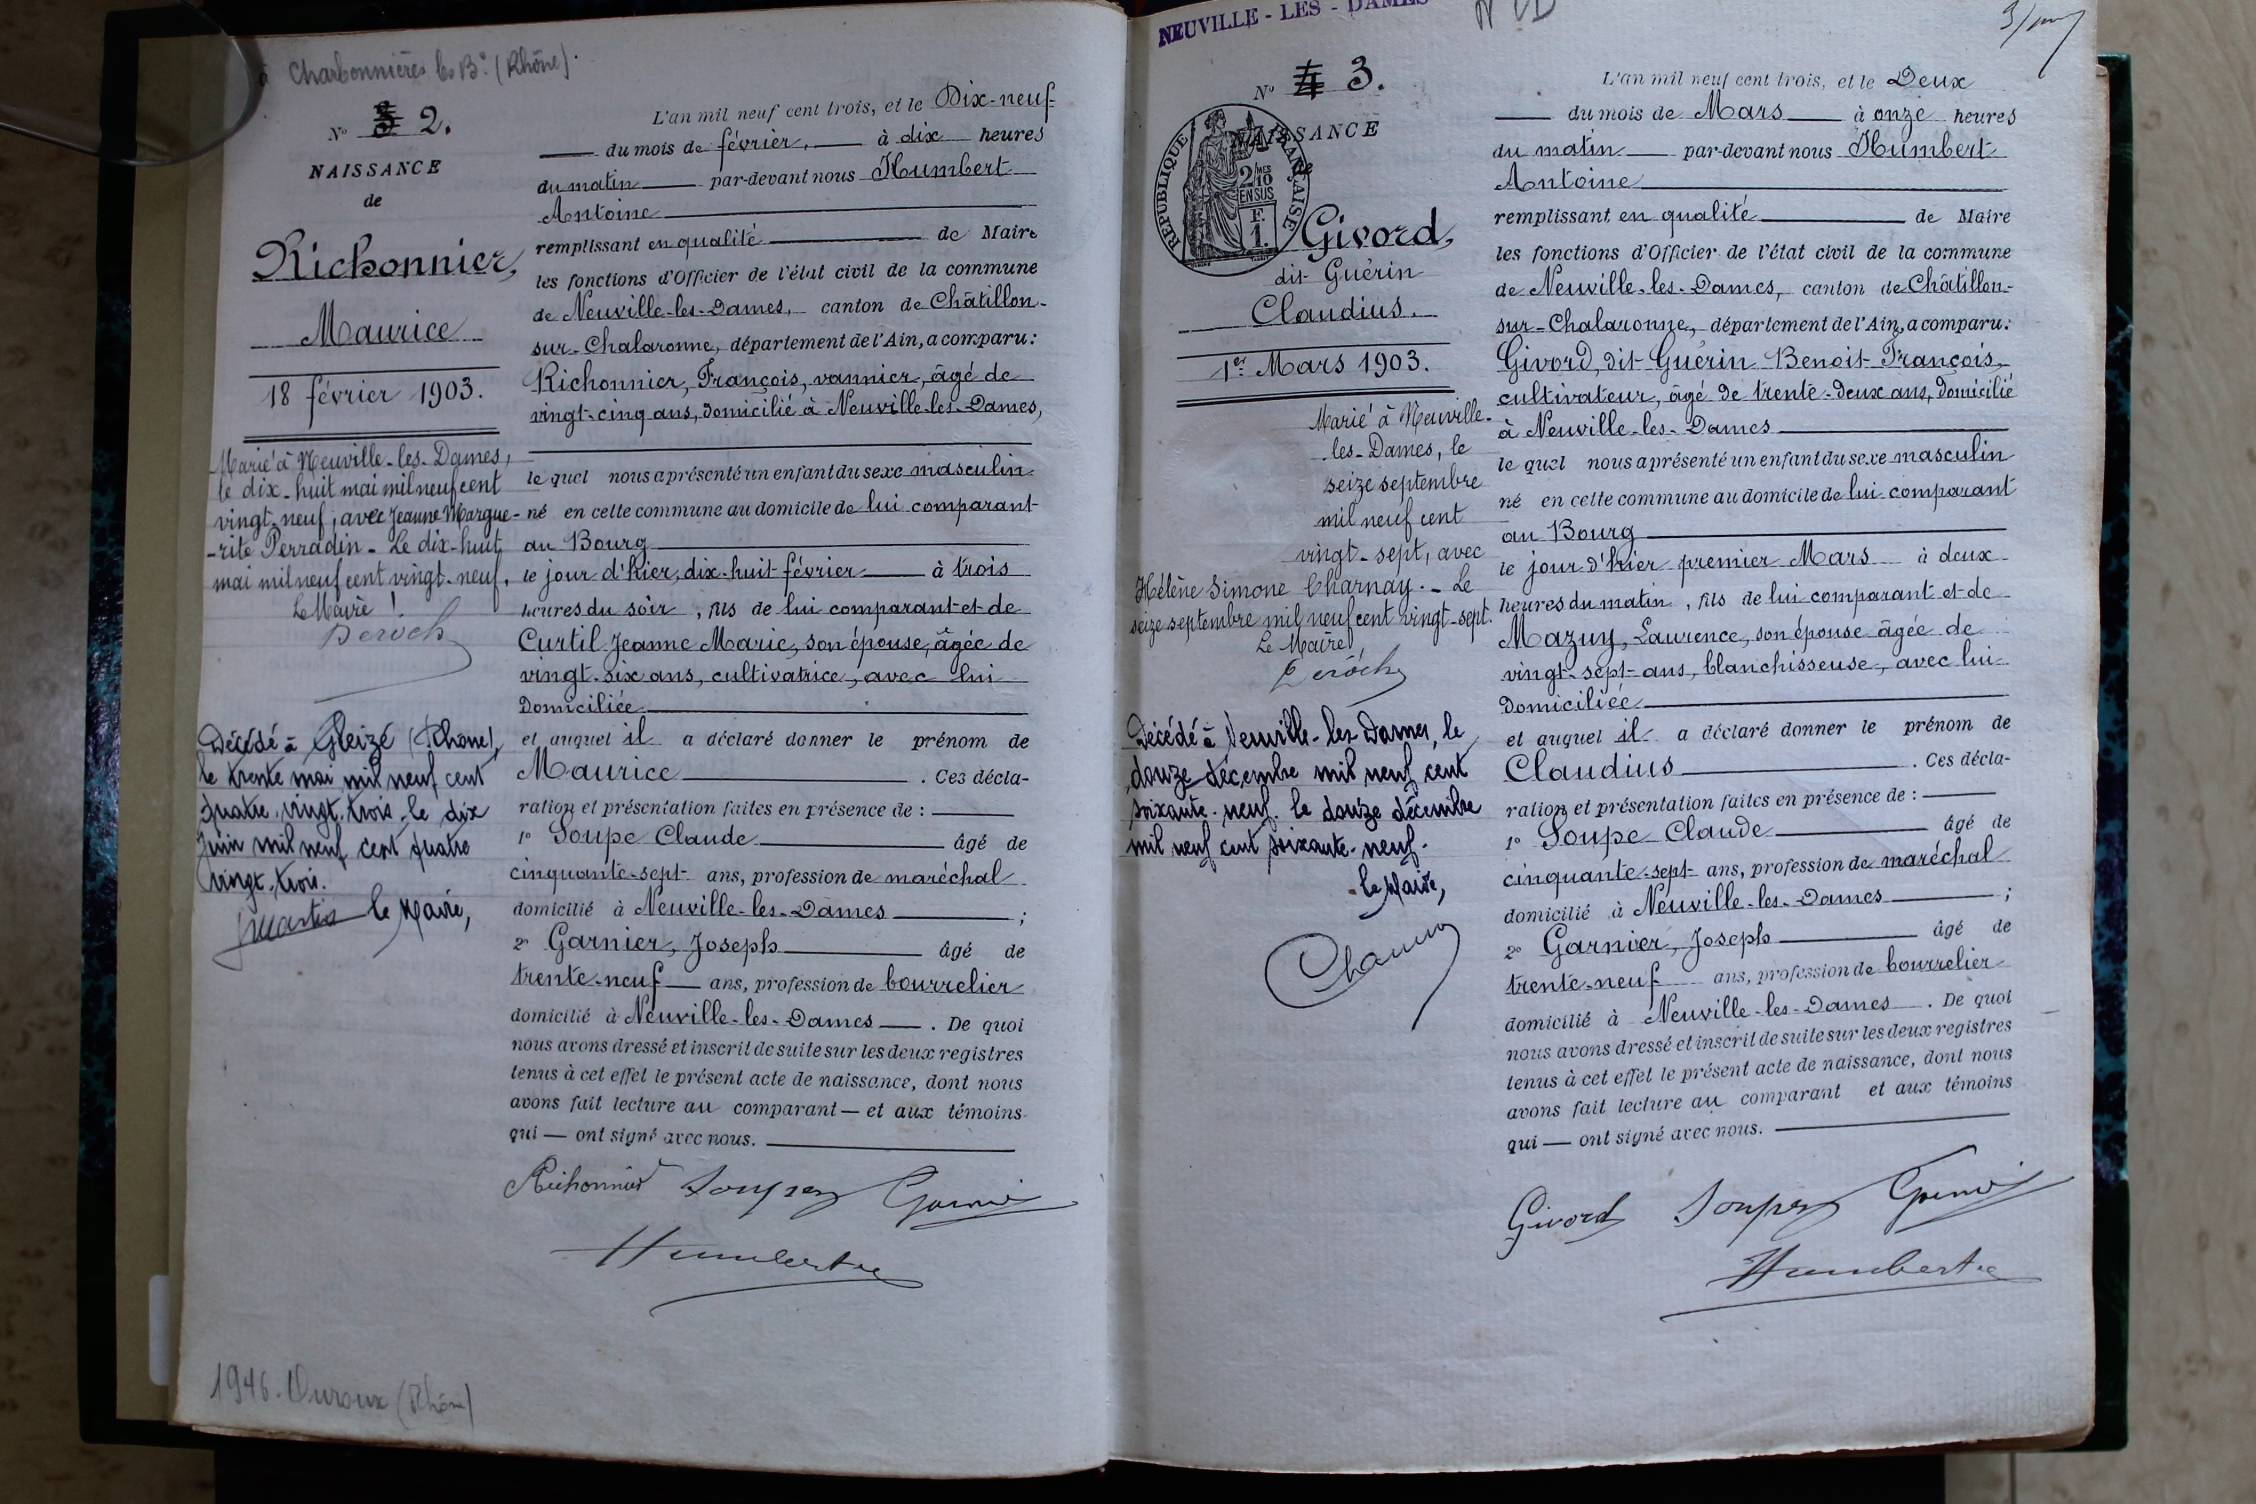 à Charbonnières les B. (Rhône).
N° 2.
NAISSANCE
de
Richonnier,
Maurice
18 février 1903.
Marié à Neuville-les-Dames,
le dix-huit mai mil neuf cent
vingt-neuf, avec Jeanne Margue-
-rite Perradin - Le dix-huit
mai mil neuf cent vingt-neuf.
Le Maire !
Deroch
Décédé à Gleizé (Rhône),
le trente mai mil neuf cent
quatre-vingt-trois - le dix
juin mil neuf cent quatre
vingt-trois.
le Maire,
1946. Ouroux (Rhône)
L'an mil neuf cent trois, et le Dix-neuf
du mois de février, à dix heures
du matin par-devant nous Humbert
Antoine
remplissant en qualité de Maire
les fonctions d'Officier de l'état civil de la commune
de Neuville-les-Dames, canton de Châtillon-
sur-Chalaronne, département de l'Ain, a comparu:
Richonnier, François, vannier, âgé de
vingt-cinq ans, domicilié à Neuville-les-Dames,
le quel nous a présenté un enfant du sexe masculin
né en cette commune au domicile de lui comparant
au Bourg
le jour d'hier, dix-huit février à trois
heures du soir, fils de lui comparant et de
Curtil Jeanne Marie, son épouse, âgée de
vingt-six ans, cultivatrice, avec lui
domiciliée
et auquel il a déclaré donner le prénom de
Maurice . Ces décla-
ration et présentation faites en présence de :
1° Soupe Claude âgé de
cinquante-sept ans, profession de maréchal
domicilié à Neuville-les-Dames ;
2° Garnier, Joseph âgé de
trente-neuf ans, profession de bourrelier
domicilié à Neuville-les-Dames . De quoi
nous avons dressé et inscrit de suite sur les deux registres
tenus à cet effet le présent acte de naissance, dont nous
avons fait lecture au comparant — et aux témoins
qui — ont signé avec nous.
Richonnier Soupe Garnier
Humbert
NEUVILLE - LES - DAMES
N° 3.
NAISSANCE
de
RÉPUBLIQUE FRANÇAISE
2/10 MES
EN SUS
F.
1.
Givord,
dit Guérin
Claudius.
1er Mars 1903.
Marié à Neuville-
les-Dames, le
seize septembre
mil neuf cent
vingt-sept, avec
Hélène Simone Charnay. - Le
seize septembre mil neuf cent vingt-sept.
Le Maire
Deroch
Décédé à Neuville-les-Dames, le
douze décembre mil neuf cent
soixante-neuf. le douze décembre
mil neuf cent soixante-neuf.
le Maire,
L'an mil neuf cent trois, et le Deux
du mois de Mars à onze heures
du matin par-devant nous Humbert
Antoine
remplissant en qualité de Maire
les fonctions d'Officier de l'état civil de la commune
de Neuville-les-Dames, canton de Châtillon-
sur-Chalaronne, département de l'Ain, a comparu:
Givord dit Guérin Benoit François,
cultivateur, âgé de trente-deux ans, domicilié
à Neuville-les-Dames
le quel nous a présenté un enfant du sexe masculin
né en cette commune au domicile de lui comparant
au Bourg
le jour d'hier premier Mars à deux
heures du matin, fils de lui comparant et de
Mazuy, Laurence, son épouse âgée de
vingt-sept ans, blanchisseuse, avec lui
domiciliée
et auquel il a déclaré donner le prénom de
Claudius . Ces décla-
ration et présentation faites en présence de :
1° Soupe Claude âgé de
cinquante-sept ans, profession de maréchal
domicilié à Neuville-les-Dames ;
2° Garnier, Joseph âgé de
trente-neuf ans, profession de bourrelier
domicilié à Neuville-les-Dames . De quoi
nous avons dressé et inscrit de suite sur les deux registres
tenus à cet effet le présent acte de naissance, dont nous
avons fait lecture au comparant et aux témoins
qui — ont signé avec nous.
Givord Soupe Garnier
Humbert